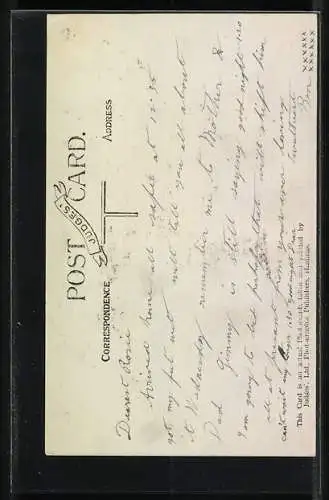 POST CARD.
JUDGES'
CORRESPONDENCE
ADDRESS
Dearest Rosie
Arrived home all safe at 12.35
got my feet wet will tell you all about
it Wednesday remember me to Mother &
Dad Jimmy is still saying good night so
I am going to bed perhaps that will shift him
all at present from your ever loving
Sweetheart
can't wait my
xxxxxx
xxxxxx
This Card is an actual Photograph, titled and printed by
Judges', Ltd., Photographic Publishers, Hastings.